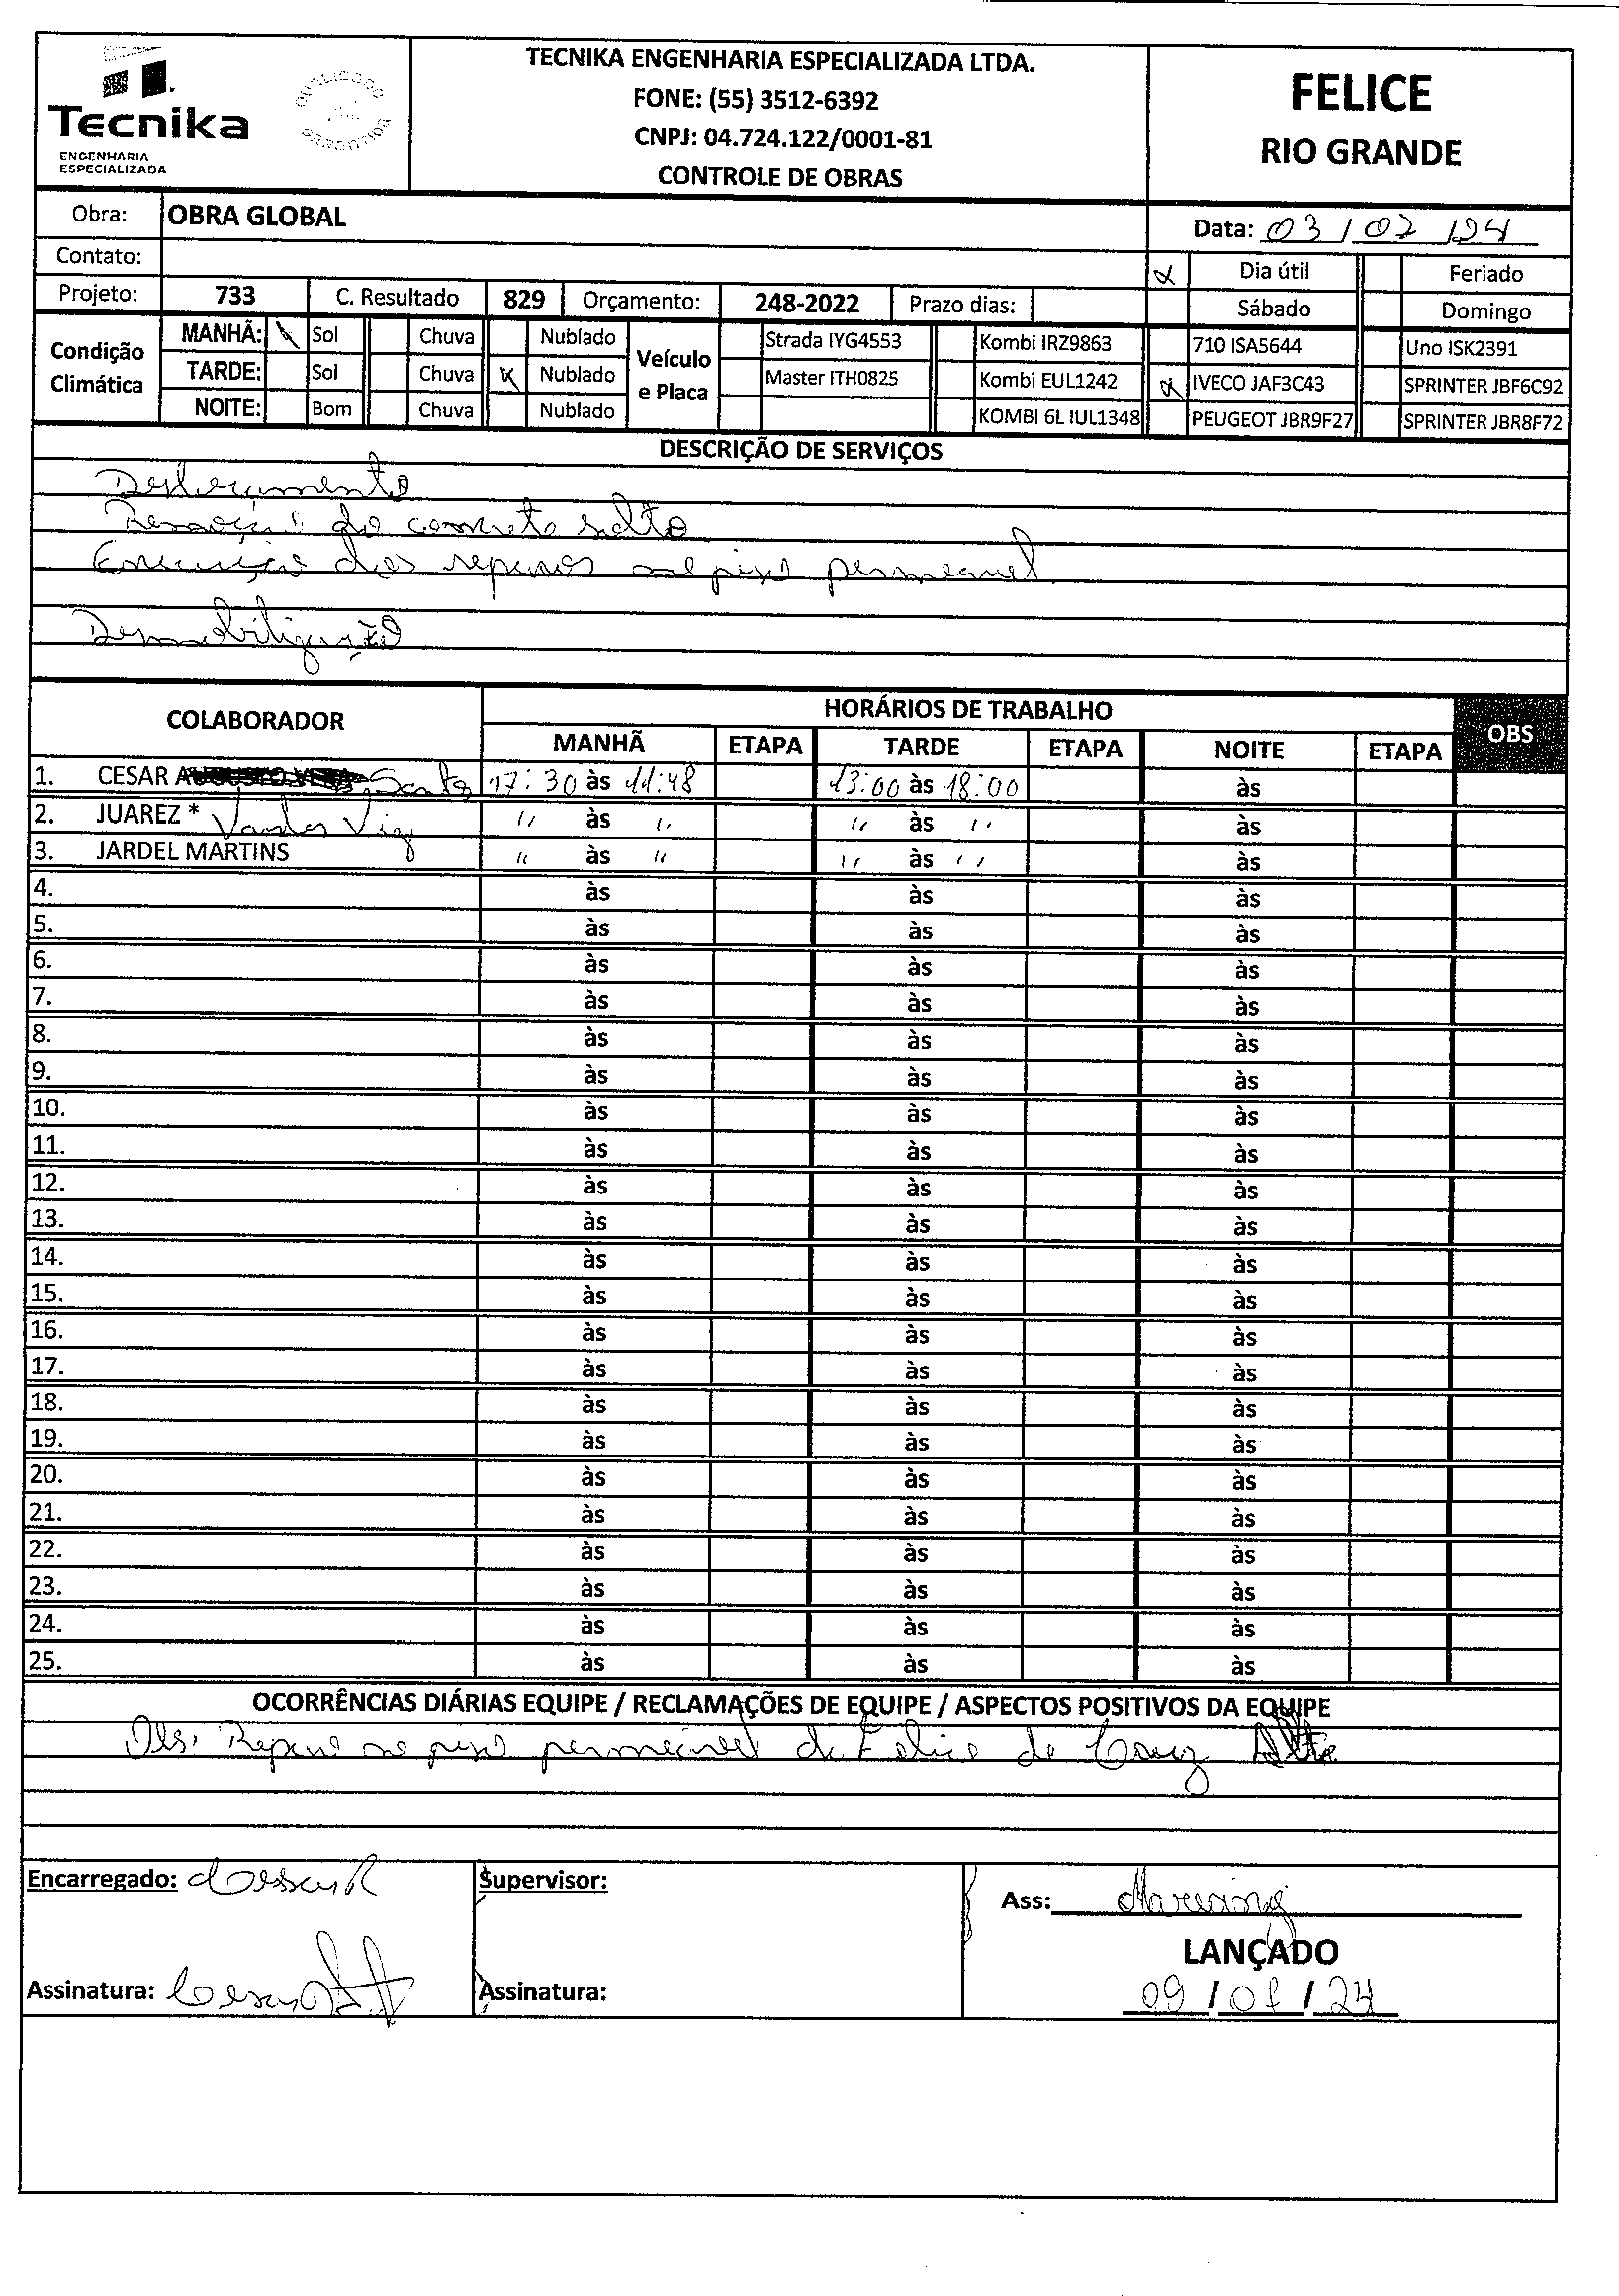 Tecnika
ENGENHARIA
ESPECIALIZADA
TECNIKA ENGENHARIA ESPECIALIZADA LTDA.
FONE: (55) 3512-6392
CNPJ: 04.724.122/0001-81
CONTROLE DE OBRAS
FELICE
RIO GRANDE
Obra: OBRA GLOBAL
Data: 03/02/24
Contato:
Dia útil Feriado
Projeto: 733 C. Resultado 829 Orçamento: 248-2022 Prazo dias:
Sábado Domingo
Condição Climática
MANHÃ: Sol Chuva Nublado
TARDE: Sol Chuva x Nublado
NOITE: Bom Chuva Nublado
Veículo e Placa
Strada IYG4553 Kombi IRZ9863 710 ISA5644 Uno ISK2391
Master ITH0825 Kombi EUL1242 x IVECO JAF3C43 SPRINTER JBF6C92
KOMBI 6L IUL1348 PEUGEOT JBR9F27 SPRINTER JBR8F72
DESCRIÇÃO DE SERVIÇOS
Deslocamento
Remoção do concreto solto
Execução dos reparos no piso permeavel
Desmobilização
COLABORADOR HORÁRIOS DE TRABALHO OBS
MANHÃ ETAPA TARDE ETAPA NOITE ETAPA
1. CESAR 17:30 às 11:48 13:00 às 18:00 às
2. JUAREZ * " às " " às " às
3. JARDEL MARTINS " às " " às " às
4. às às às
5. às às às
6. às às às
7. às às às
8. às às às
9. às às às
10. às às às
11. às às às
12. às às às
13. às às às
14. às às às
15. às às às
16. às às às
17. às às às
18. às às às
19. às às às
20. às às às
21. às às às
22. às às às
23. às às às
24. às às às
25. às às às
OCORRÊNCIAS DIÁRIAS EQUIPE / RECLAMAÇÕES DE EQUIPE / ASPECTOS POSITIVOS DA EQUIPE
Obs: Reparo no piso permeável da Felice de Cruz Alta
Encarregado: Cesar
Supervisor:
Ass:
LANÇADO
Assinatura: Cesar
Assinatura:
09/0 /24